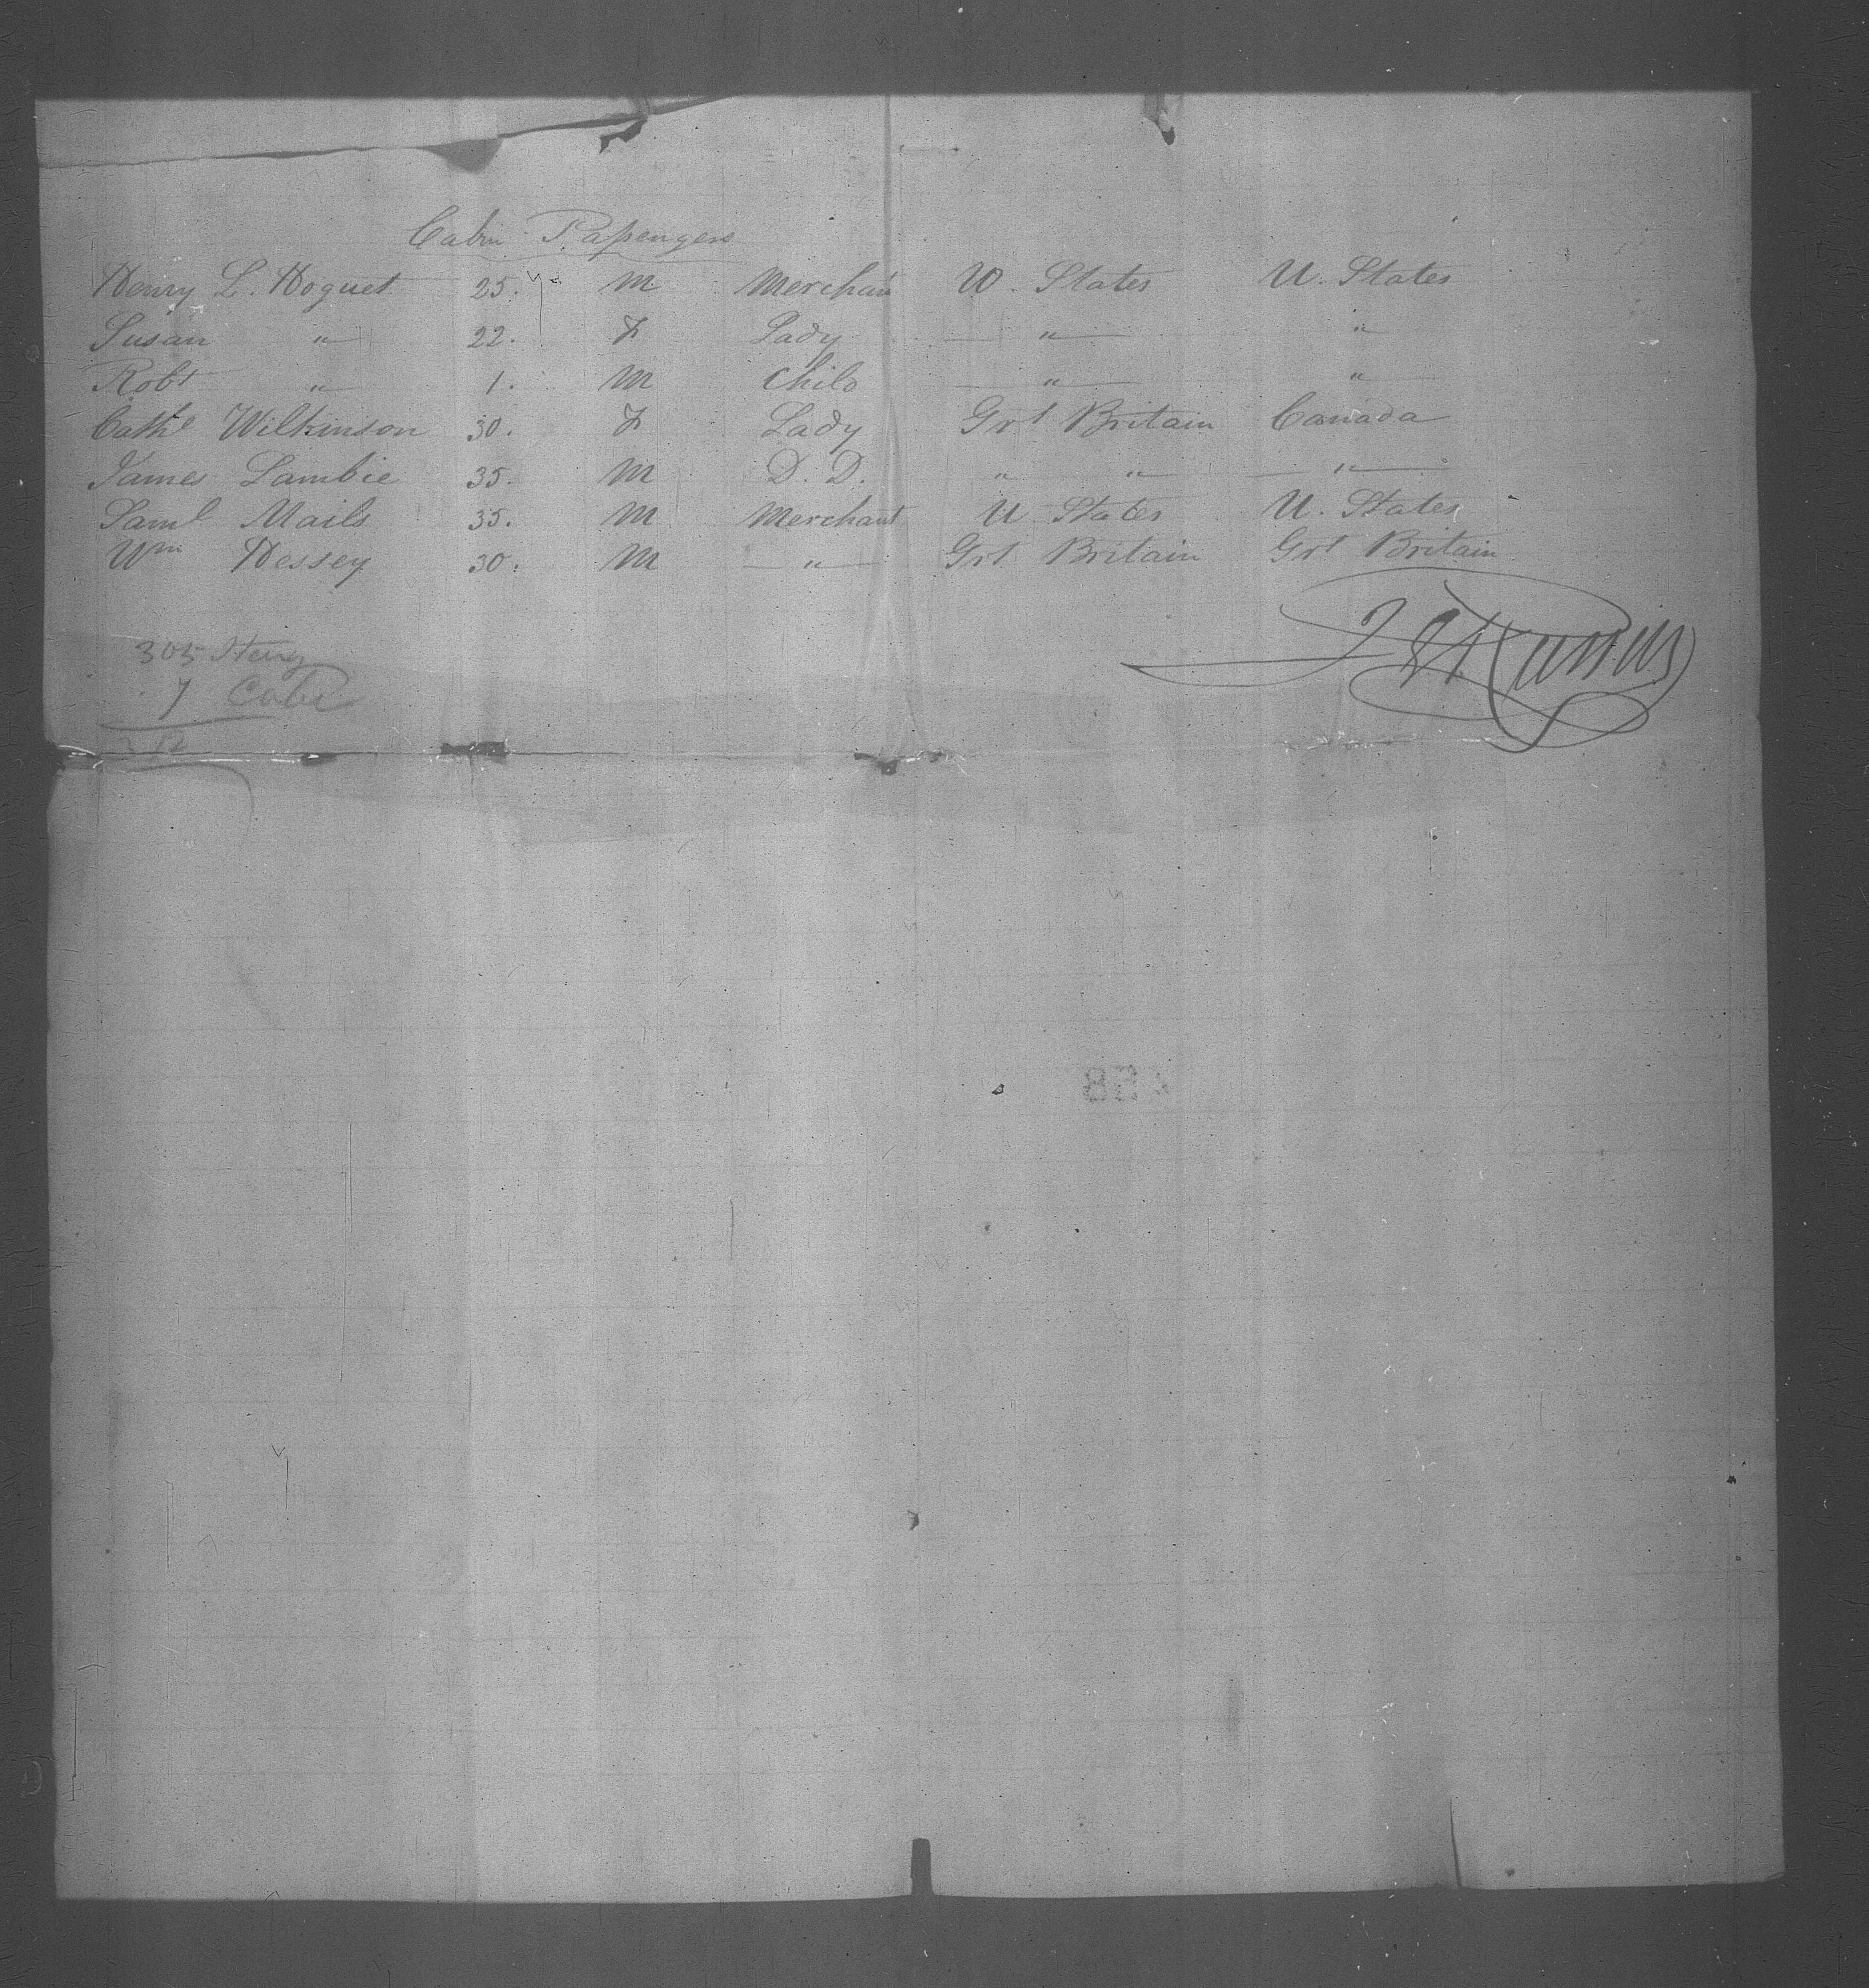 Cabin Passengers
Henry L. Hoguet 25. M Merchant U. States U. States
Susan " 22. F Lady " "
Robt " 1. M Child " "
Cathe Wilkinson 30. F Lady Grt Britain Canada
James Lambie 35. M D. D. " " "
Saml Mails 35. M Merchant U States U. States
Wm Hessey 30. M " Grt Britain Grt Britain
305
7 Cabin